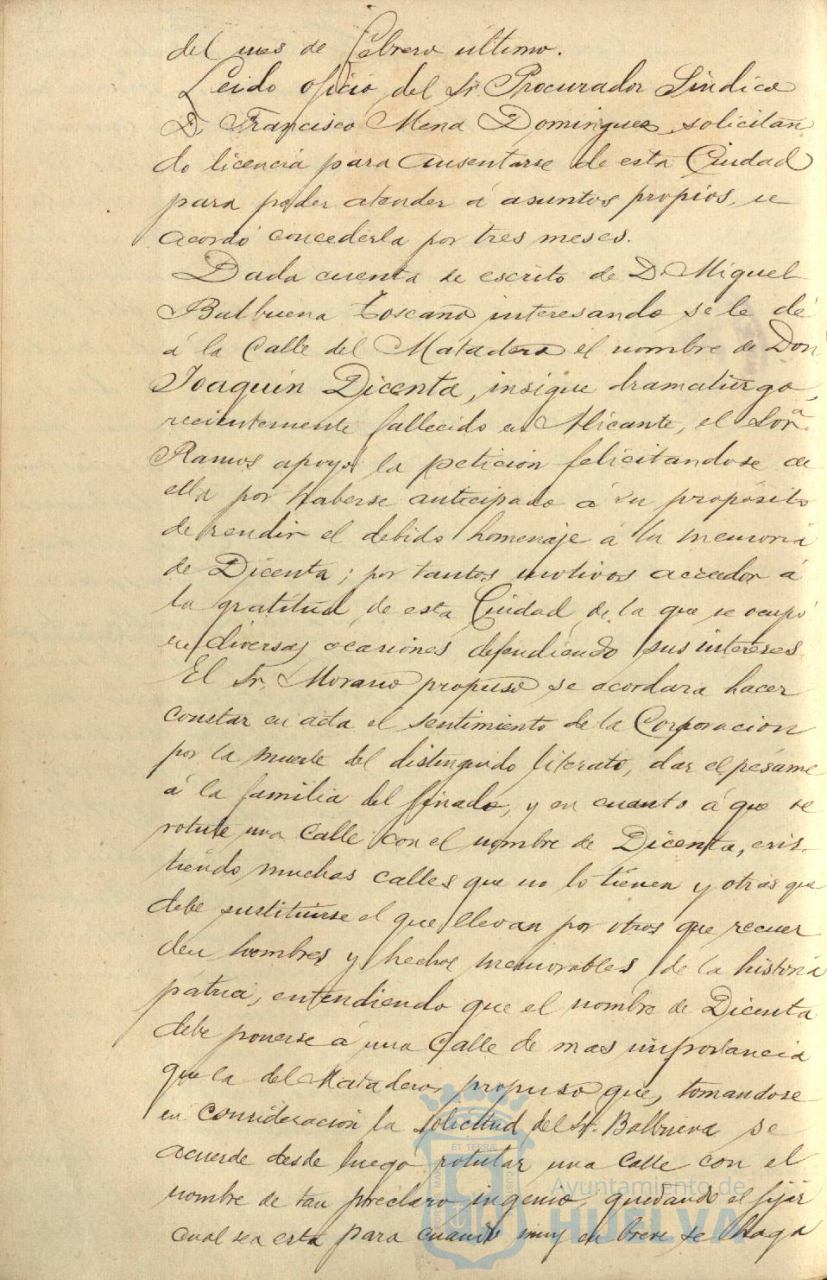 del mes de Febrero último.
Leido oficio del Sr. Procurador Sindico
D. Francisco Mena Dominguez, solicitan
do licencia para ausentarse de esta Ciudad
para poder atender á asuntos propios, se
acordó concederla por tres meses.
Dada cuenta de escrito de D. Miguel
Balbuena Toscano interesando se le dé
á la Calle del Matadero el nombre de Don
Joaquín Dicenta, insigne dramaturgo,
recientemente fallecido en Alicante, el Sor.
Ramos apoyó la petición felicitandose de
ella por haberse anticipado á su propósito
de rendir el debido homenaje á la memoria
de Dicenta; por tantos motivos acreedor á
la gratitud de esta Ciudad de la que se ocupó
en diversas ocasiones defendiendo sus intereses.
El Sr. Morano propuso se acordara hacer
constar en acta el sentimiento de la Corporacion
por la muerte del distinguido literato, dar el pésame
á la familia del finado, y en cuanto á que se
rotule una Calle con el nombre de Dicenta, exis-
tiendo muchas calles que no lo tienen y otras que
debe sustituirse el que llevan por otros que recuer
den hombres y hechos memorables de la historia
pátria, entendiendo que el nombre de Dicenta
debe ponerse á una Calle de mas importancia
que la del Matadero, propuso que, tomandose
en consideración la solicitud del Sr. Balbuena se
acuerde desde luego rotular una calle con el
nombre de tan preclaro ingenio, quedando el fijar
cual sea esta para cuando muy en breve se haga
Ayuntamiento de
HUELVA